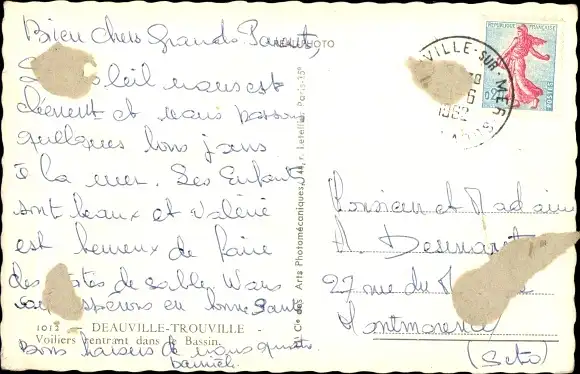 Bien Chers Grands Parents,
REAL-PHOTO
soleil nous est
clément et nous passons
quelques bons jours
à la mer. Les Enfants
sont beaux et Valérie
est heureux de faire
des de sable. Nous
espérons en bonne santé
1012 - DEAUVILLE-TROUVILLE -
Voiliers rentrant dans le Bassin.
Bons baisers de nous quatre.
Cie des Arts Photomécaniques, 44, r. Letellier, Paris-15e
REPUBLIQUE FRANÇAISE
0,2
POSTES
VILLE-SUR-MER
1962
Monsieur et Madame
A.
27 rue du
Montmorency
(Seto)